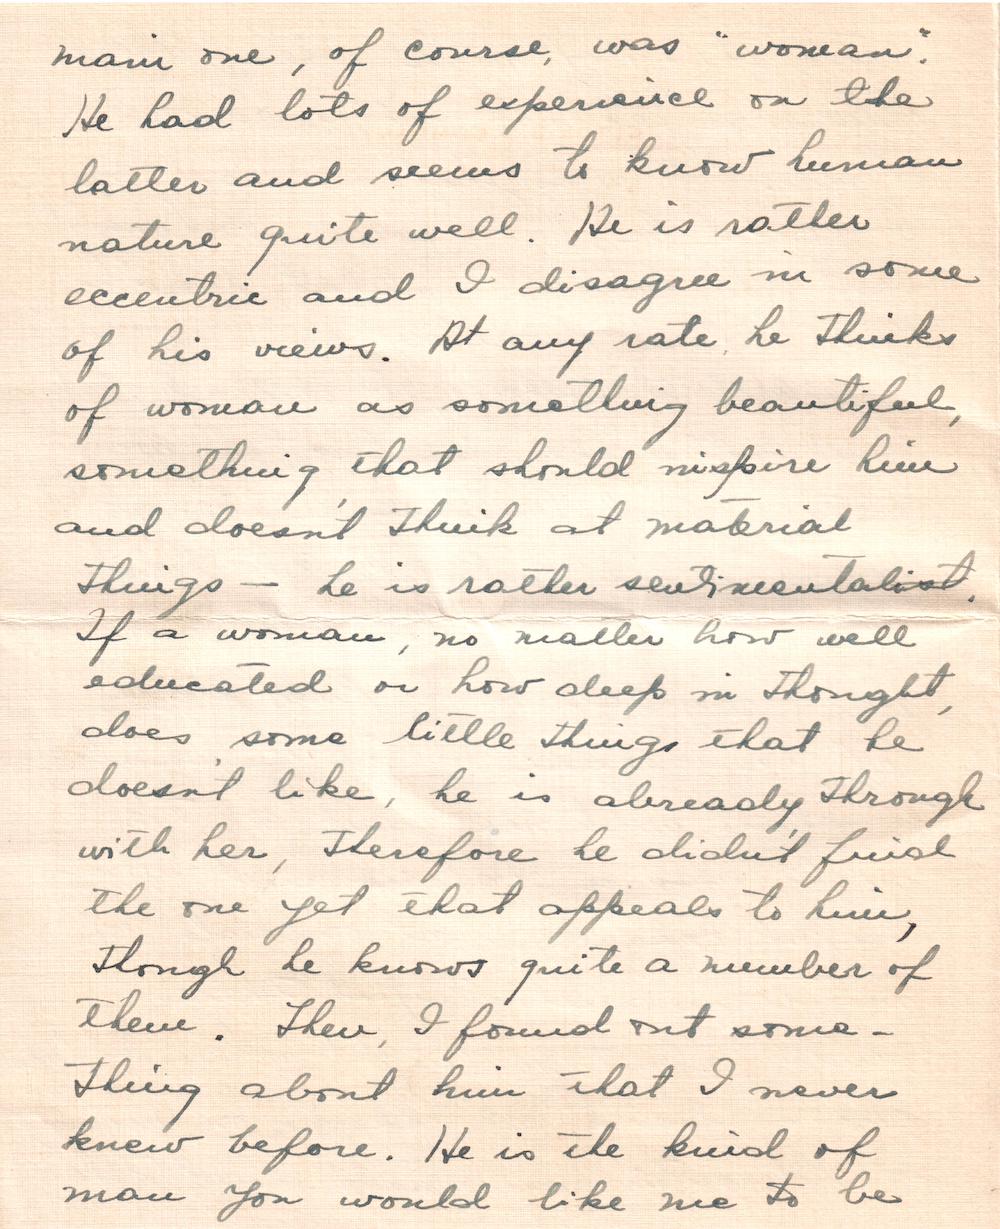 main one, of course, was "woman".
He had lots of experience on the
latter and seems to know human
nature quite well. He is rather
eccentric and I disagree in some
of his views. At any rate, he thinks
of woman as something beautiful,
something that should inspire him
and doesn't think at material
things — he is rather sentimentalist.
If a woman, no matter how well
educated or how deep in thought,
does some little things that he
doesn't like, he is already through
with her, therefore he didn't find
the one yet that appeals to him,
though he knows quite a number of
them. Then, I found out some-
thing about him that I never
knew before. He is the kind of
man you would like me to be